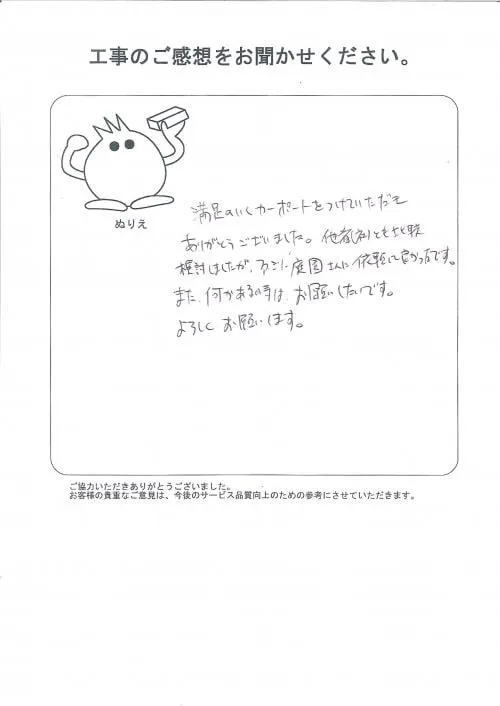 工事のご感想をお聞かせください。
ぬりえ
満足のいくカーポートをつけていただき
ありがとうございました。他者社とも比較
検討しましたが、庭園さんに依頼して良かったです。
また、何かある時は、お願いしたいです。
よろしくお願いします。
ご協力いただきありがとうございました。
お客様の貴重なご意見は、今後のサービス品質向上のための参考にさせていただきます。